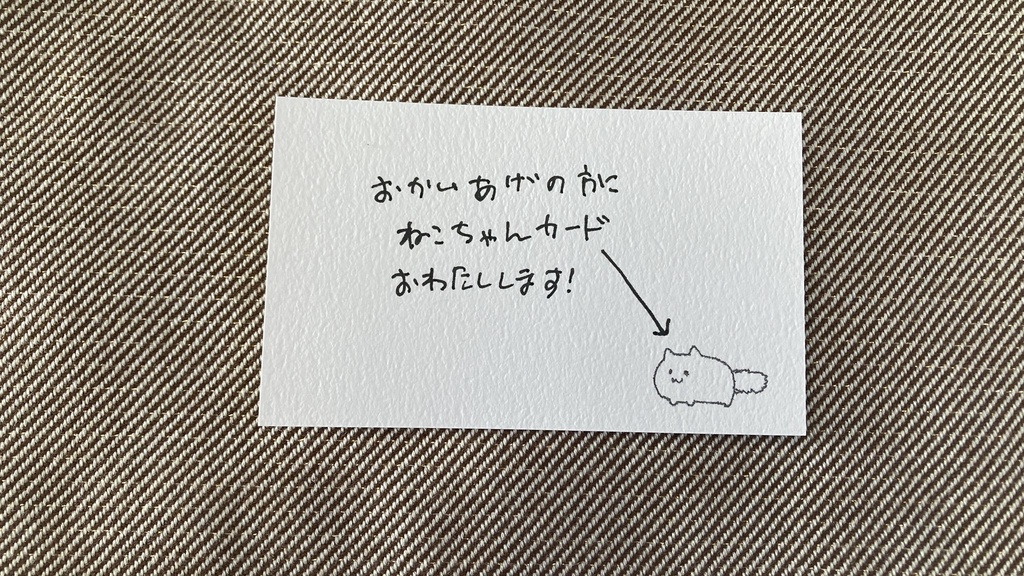 おかいあげの方に
ねこちゃんカード
おわたしします!